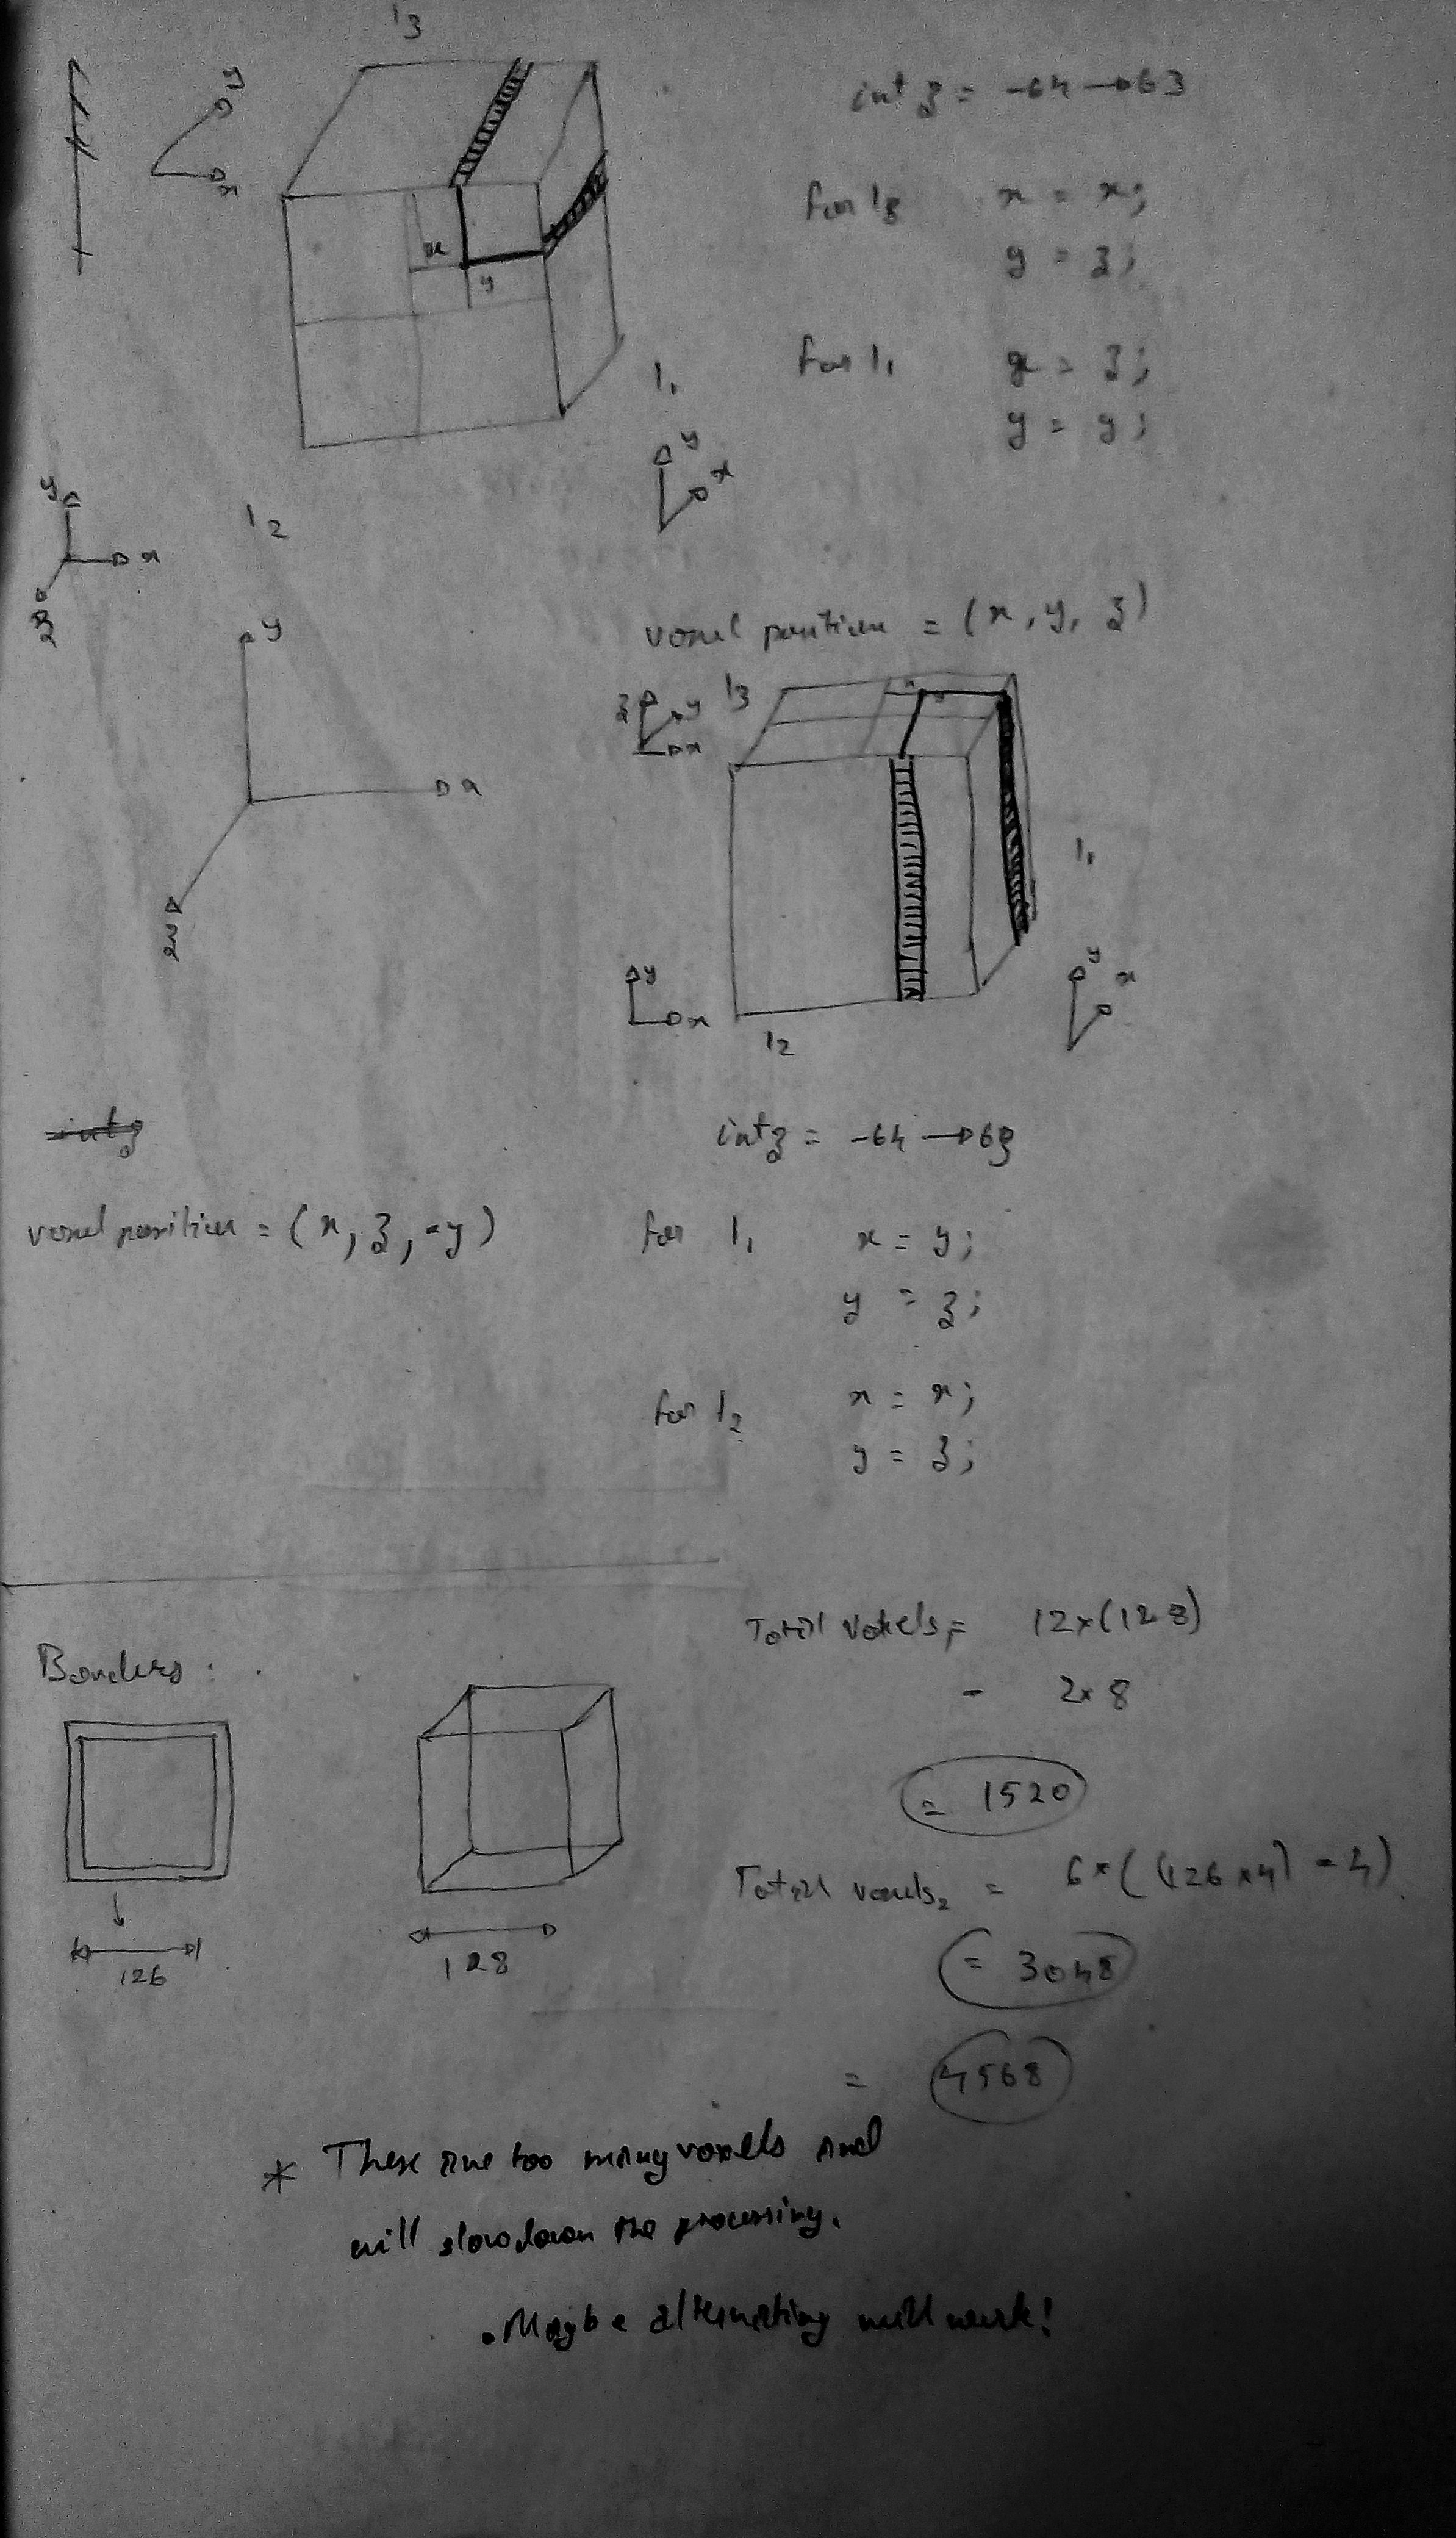 l3
y
x
int z = -64 → 63
for l3 x = x;
y = z;
x
y
for l1 x = z;
y = y;
l1
y
x
y
x
z
l2
y
x
z
voxel position = (x, y, z)
z
y
x
l3
x
y
l1
y
x
l2
y
x
int z
int z = -64 → 63
voxel position = (x, z, -y)
for l1 x = y;
y = z;
for l2 x = x;
y = z;
Total voxels1 = 12x(128)
- 2x8
Borders:
= 1520
Total voxels2 = 6*((126x4) - 4)
126
128
= 3048
= 4568
* These are too many voxels and
will slowdown the processing.
. Maybe alternating will work!